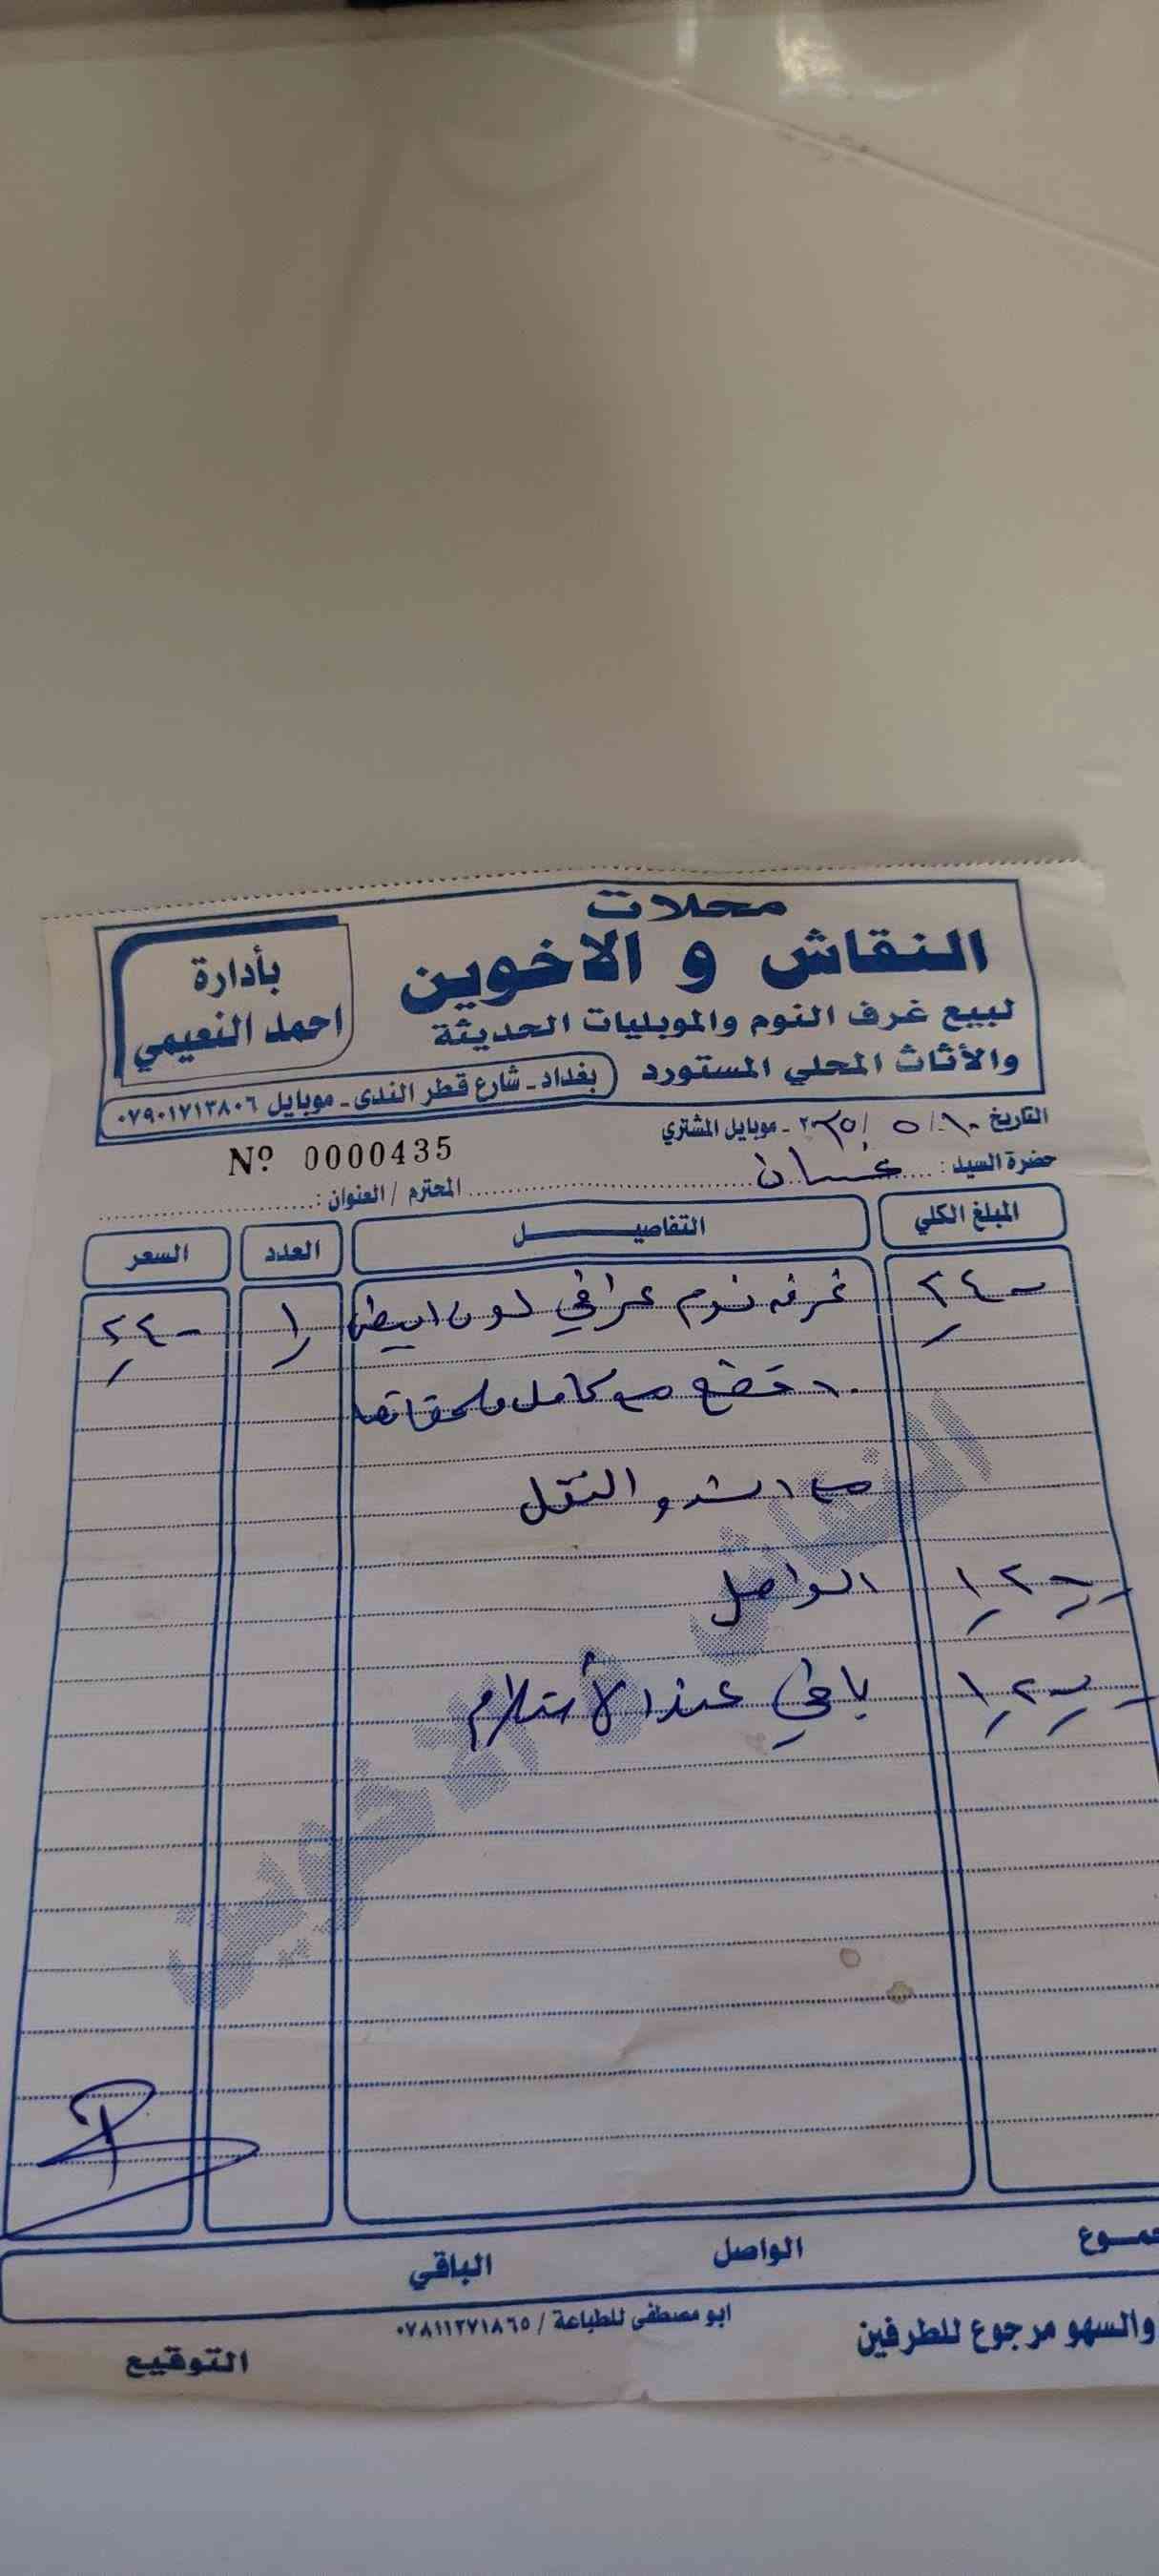 محلات
النقاش و الاخوين
لبيع غرف النوم والموبليات الحديثة
والأثاث المحلي المستورد
بأدارة
احمد النعيمي
بغداد - شارع قطر الندى - موبايل ٠٧٩٠١٧١٣٨٠٦
التاريخ ١٠ / ٥ / ٢٠٢٥ - موبايل المشتري
Nº 0000435
حضرة السيد : غسان المحترم / العنوان :
المبلغ الكلي التفاصيل العدد السعر
٢٤٠٠ غرفه نوم عراقي لون ابيض ١ ٢٤٠٠
١٠ قطع مع كامل ملحقاتها
مع الشد و النقل
الواصل
باقي عند الأستلام
النقاش والاخوين
الواصل الباقي
والسهو مرجوع للطرفين
ابو مصطفى للطباعة / ٠٧٨١١٢٧١٨٦٥
التوقيع